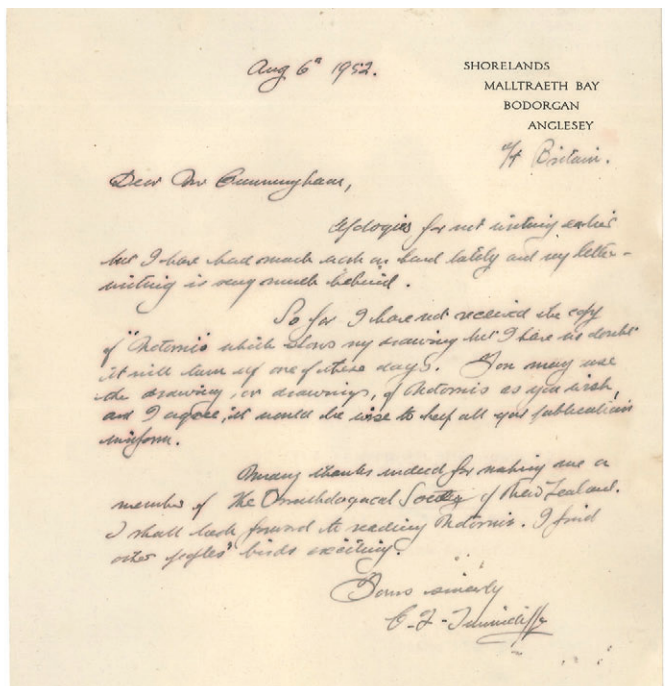 Aug 6th 1952.
SHORELANDS
MALLTRAETH BAY
BODORGAN
ANGLESEY
Gt Britain.
Dear Mr Cunningham,
Apologies for not writing earlier
but I have had much work on hand lately and my letter-
writing is very much behind.
So far I have not received the copy
of "Notornis" which shows my drawing but I have no doubt
it will turn up one of these days. You may use
the drawing, or drawings, of Notornis as you wish,
and I agree, it would be wise to keep all your publications
uniform.
Many thanks indeed for making me a
member of The Ornithological Society of New Zealand.
I shall look forward to reading Notornis. I find
other peoples' birds exciting.
Yours sincerely
C. F. Tunnicliffe